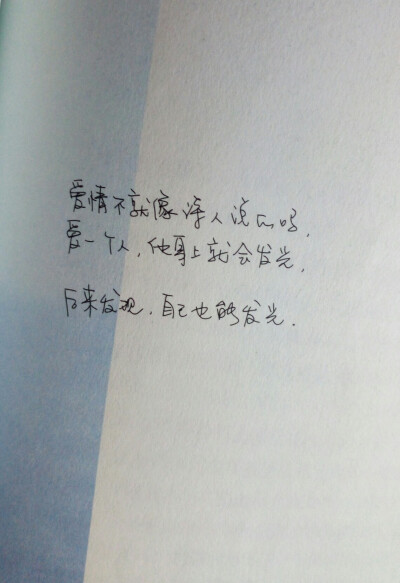 爱情不就像诗人说的吗，
爱一个人，他身上就会发光，
后来发现，自己也能发光．